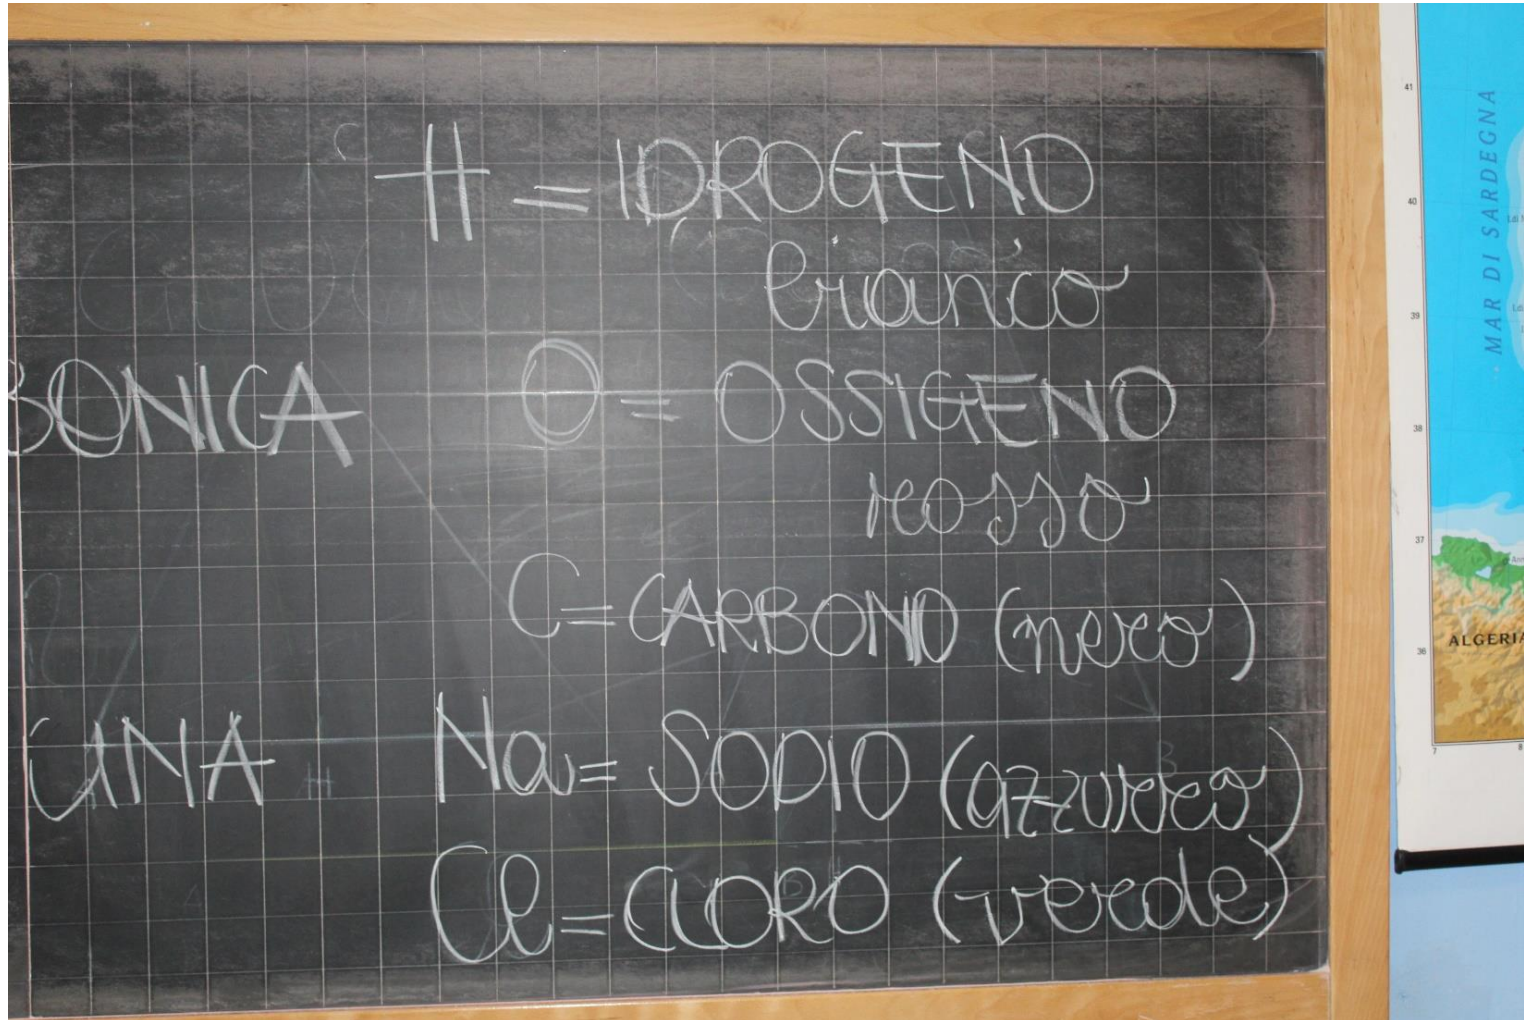 H = IDROGENO
bianco
BONICA
O = OSSIGENO
rosso
C = CARBONIO (nero)
INA
Na = SODIO (azzurro)
Cl = CLORO (verde)
MAR DI SARDEGNA
ALGERIA
41
40
39
38
37
36
7
8